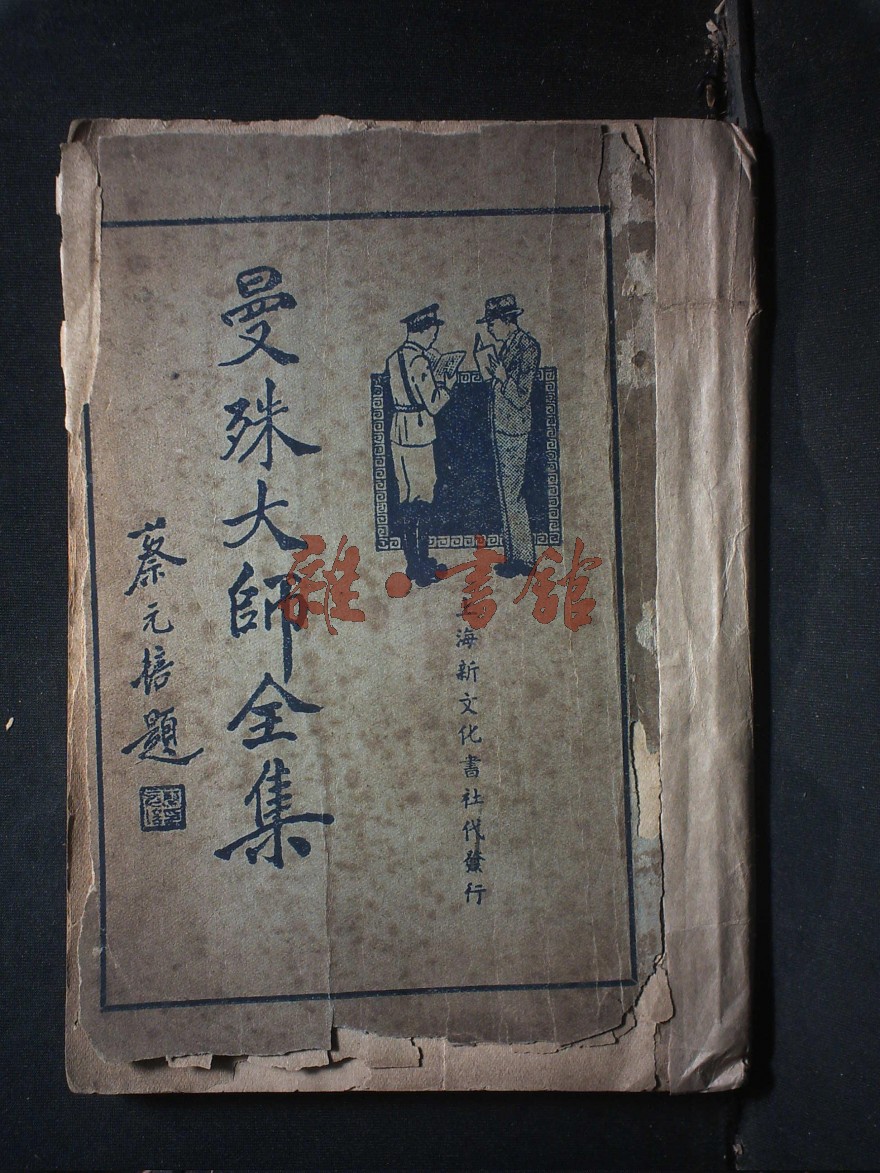 上海新文化書社代發行
曼殊大師全集
蔡元培題
雜·書館